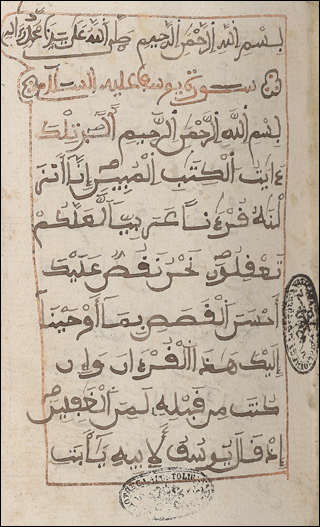 بسم الله الرحمن الرحيم صلى الله على سيدنا محمد واله
سورة يوسف عليه السلام
بسم الله الرحمن الرحيم الر تلك
ءايت الكتب المبين إنا أنز
لنه قرءنا عربيا لعلكم
تعقلون نحن نقص عليك
أحسن القصص بما أوحينا
إليك هذا القرءان وإن
كنت من قبله لمن الغفلين
إذ قال يوسف لأبيه يأبت